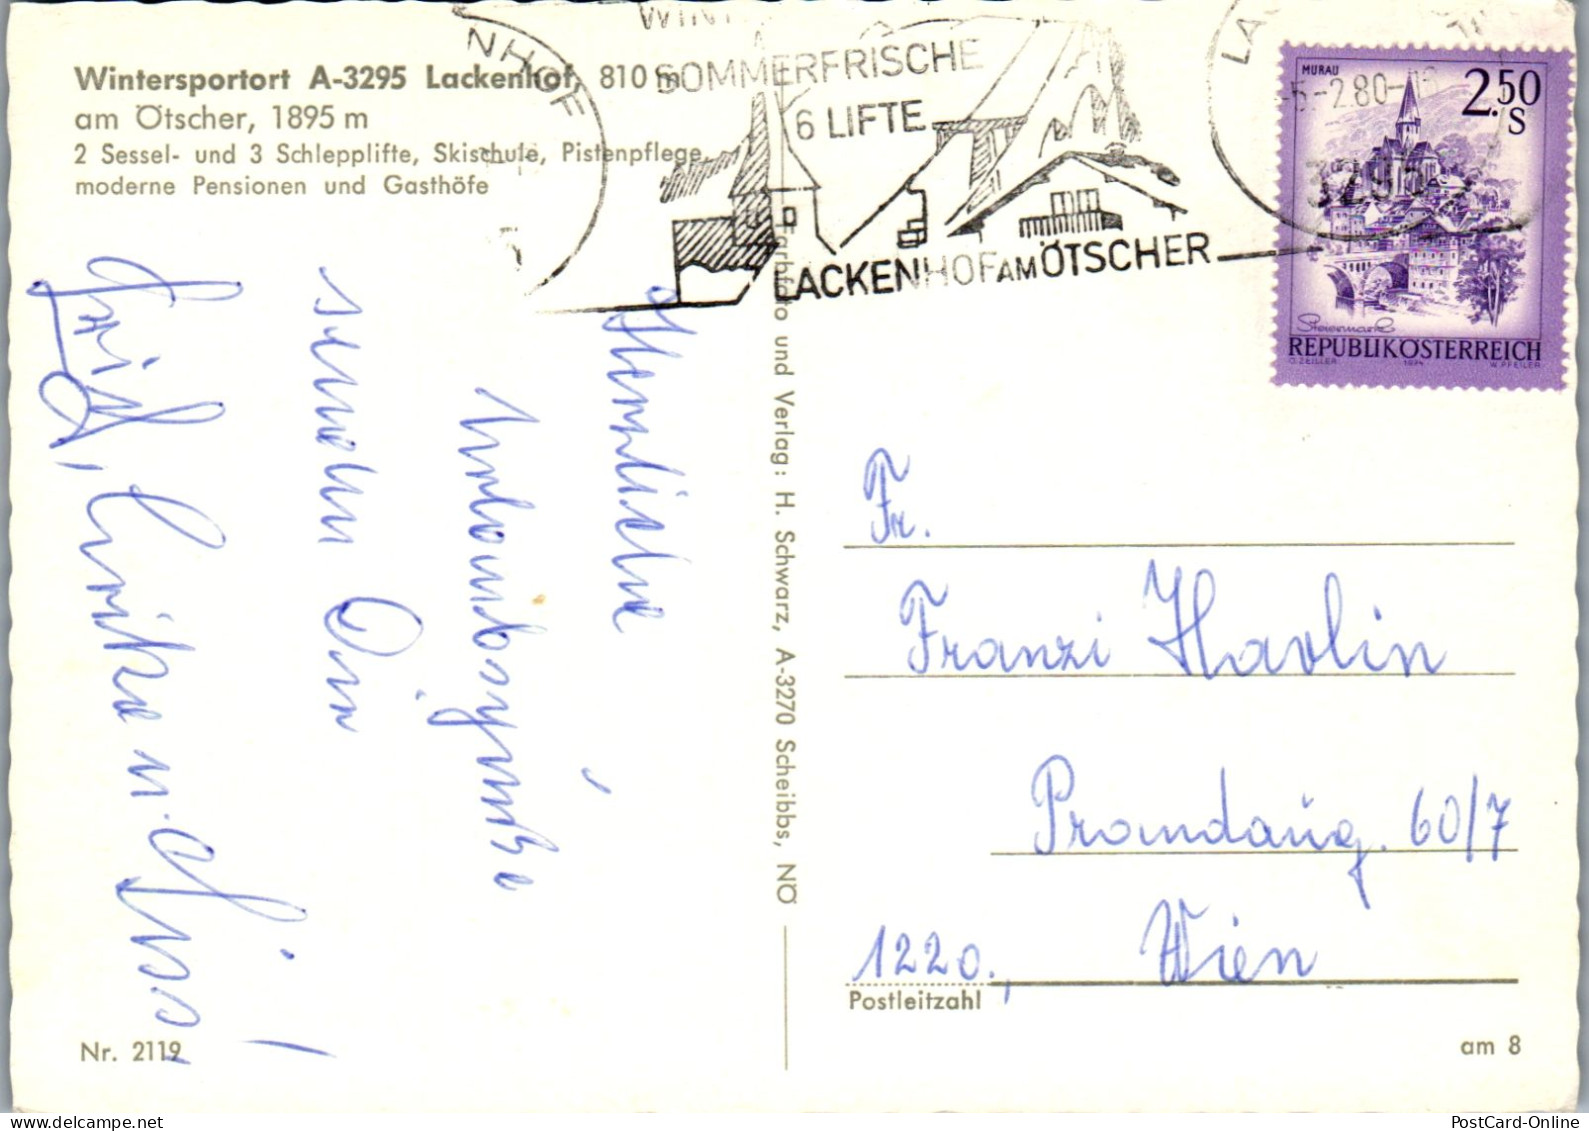 Wintersportort A-3295 Lackenhof, 810 m
am Ötscher, 1895 m
2 Sessel- und 3 Schlepplifte, Skischule, Pistenpflege,
moderne Pensionen und Gasthöfe
SOMMERFRISCHE
6 LIFTE
LACKENHOF AM ÖTSCHER
NHOF
LA
-5.-2.80-
3295
MURAU
2.50
S
Steiermark
REPUBLIK ÖSTERREICH
O. ZEISLER 1974 W. PFEILER
Herzliche
Urlaubsgrüße
senden Dir
Ulrike u.
Farbfoto und Verlag: H. Schwarz, A-3270 Scheibbs, NÖ
Fr.
Franzi Havlin
60/7
1220, Wien
Postleitzahl
Nr. 2119
am 8
PostCard-Online